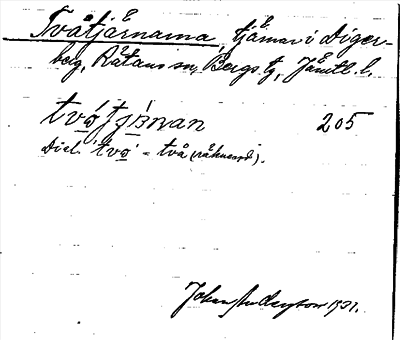 Tvåtjärnarna, tjärnar i Diger-
berg, Rätans sn, Bergs tg, Jämtl. l.
tvo̲tjä̲nan 205
Dial. 'tvo̲' = två (räkneord).
Johan Anderson 1931.